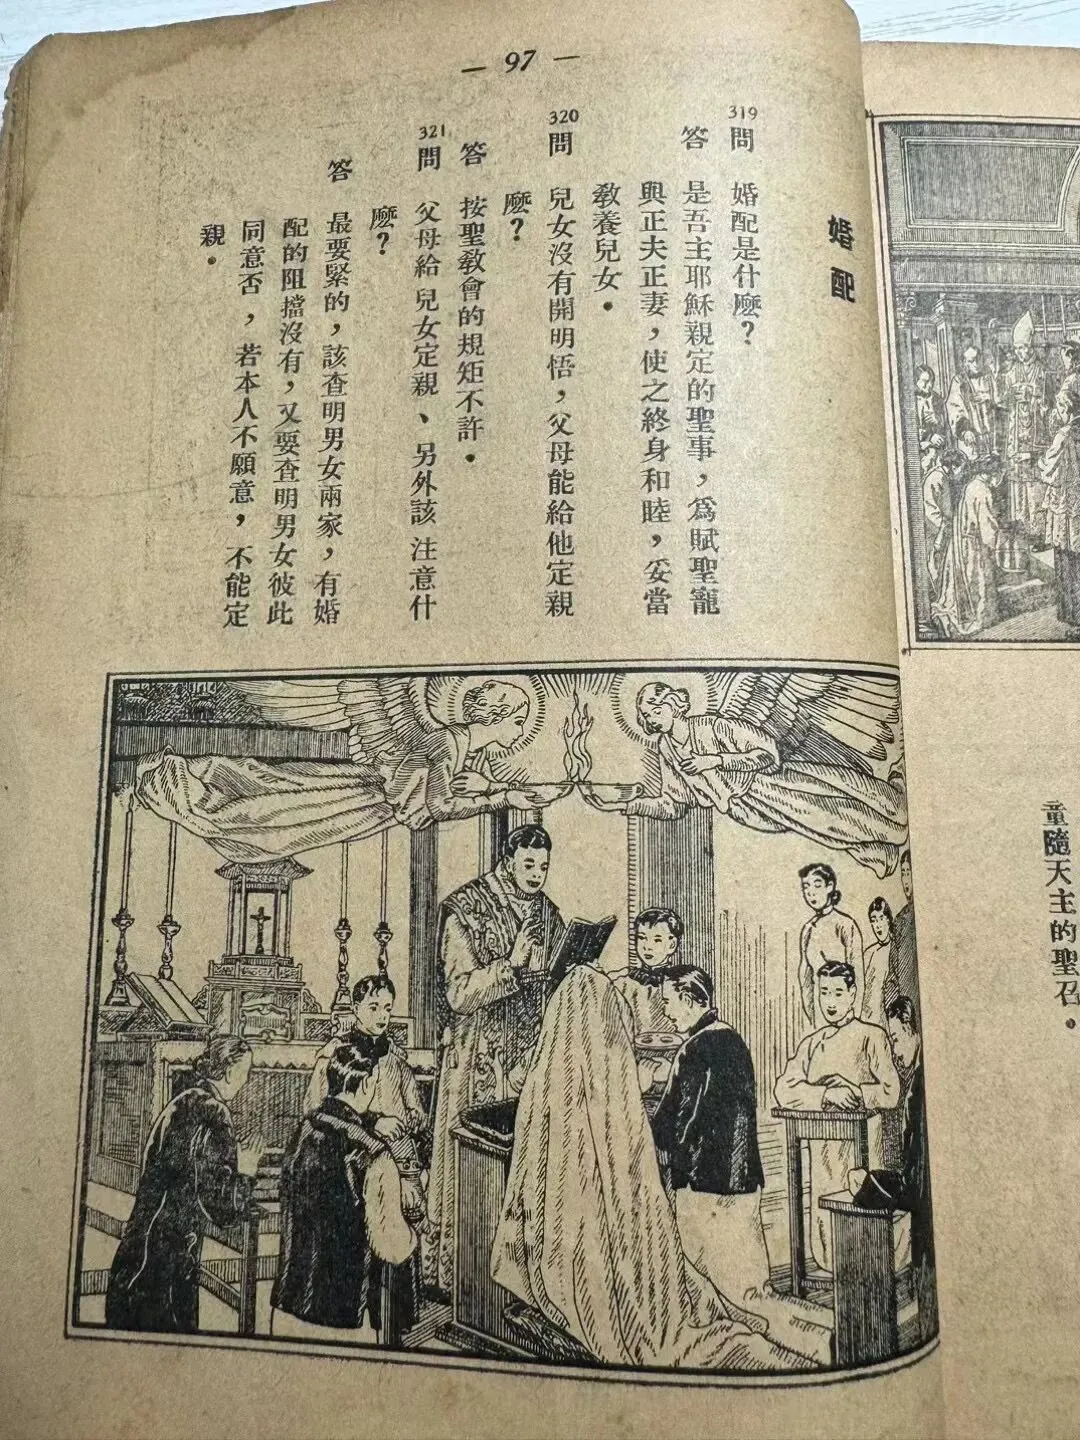 — 97 —
婚配
319 問 婚配是什麽？
答 是吾主耶穌親定的聖事，爲賦聖寵
與正夫正妻，使之終身和睦，妥當
敎養兒女．
320 問 兒女沒有開明悟，父母能給他定親
麽？
答 按聖敎會的規矩不許．
321 問 父母給兒女定親、另外該注意什
麽？
答 最要緊的，該查明男女兩家，有婚
配的阻擋沒有，又要查明男女彼此
同意否，若本人不願意，不能定
親．
童隨天主的聖召．